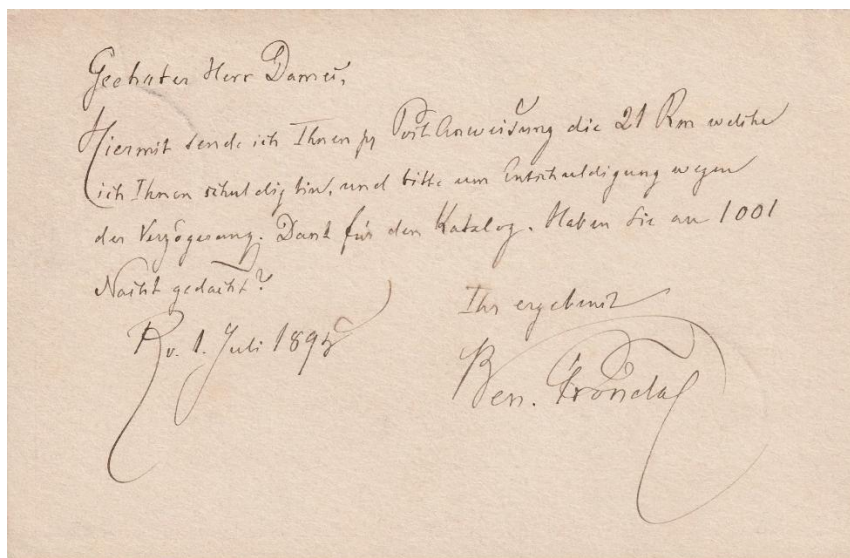 Geehrter Herr Damen,
Hiermit sende ich Ihnen pr Post Anweisung die 21 Rm welche
ich Ihnen schuldig bin, und bitte um Entschuldigung wegen
der Verzögerung. Dank für den Katalog. Haben Sie an 1001
Nacht gedacht?
Ihr ergebenst
Rv. 1. Juli 189
Ben. Gröndal